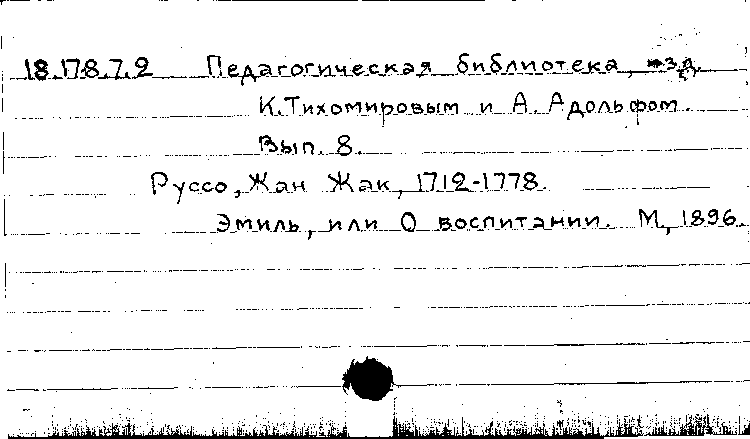 18.178.7.2 Педагогическая библиотека, изд.
К. Тихомировым и А. Адольфом.
Вып. 8.
Руссо, Жан Жак, 1712-1778.
Эмиль, или О воспитании. М., 1896.